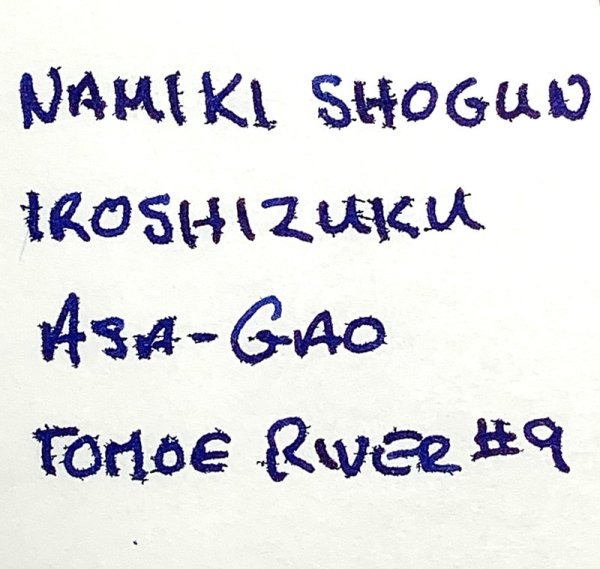 NAMIKI SHOGUN
IROSHIZUKU
ASA-GAO
TOMOE RIVER #9